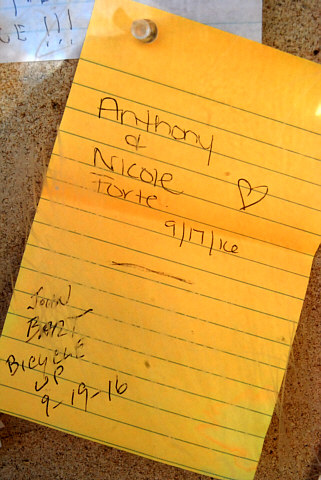 E !!!
Anthony
&
Nicole
Forte
9/17/16
JOHN
BART
BICYCLE
UP
9-19-16